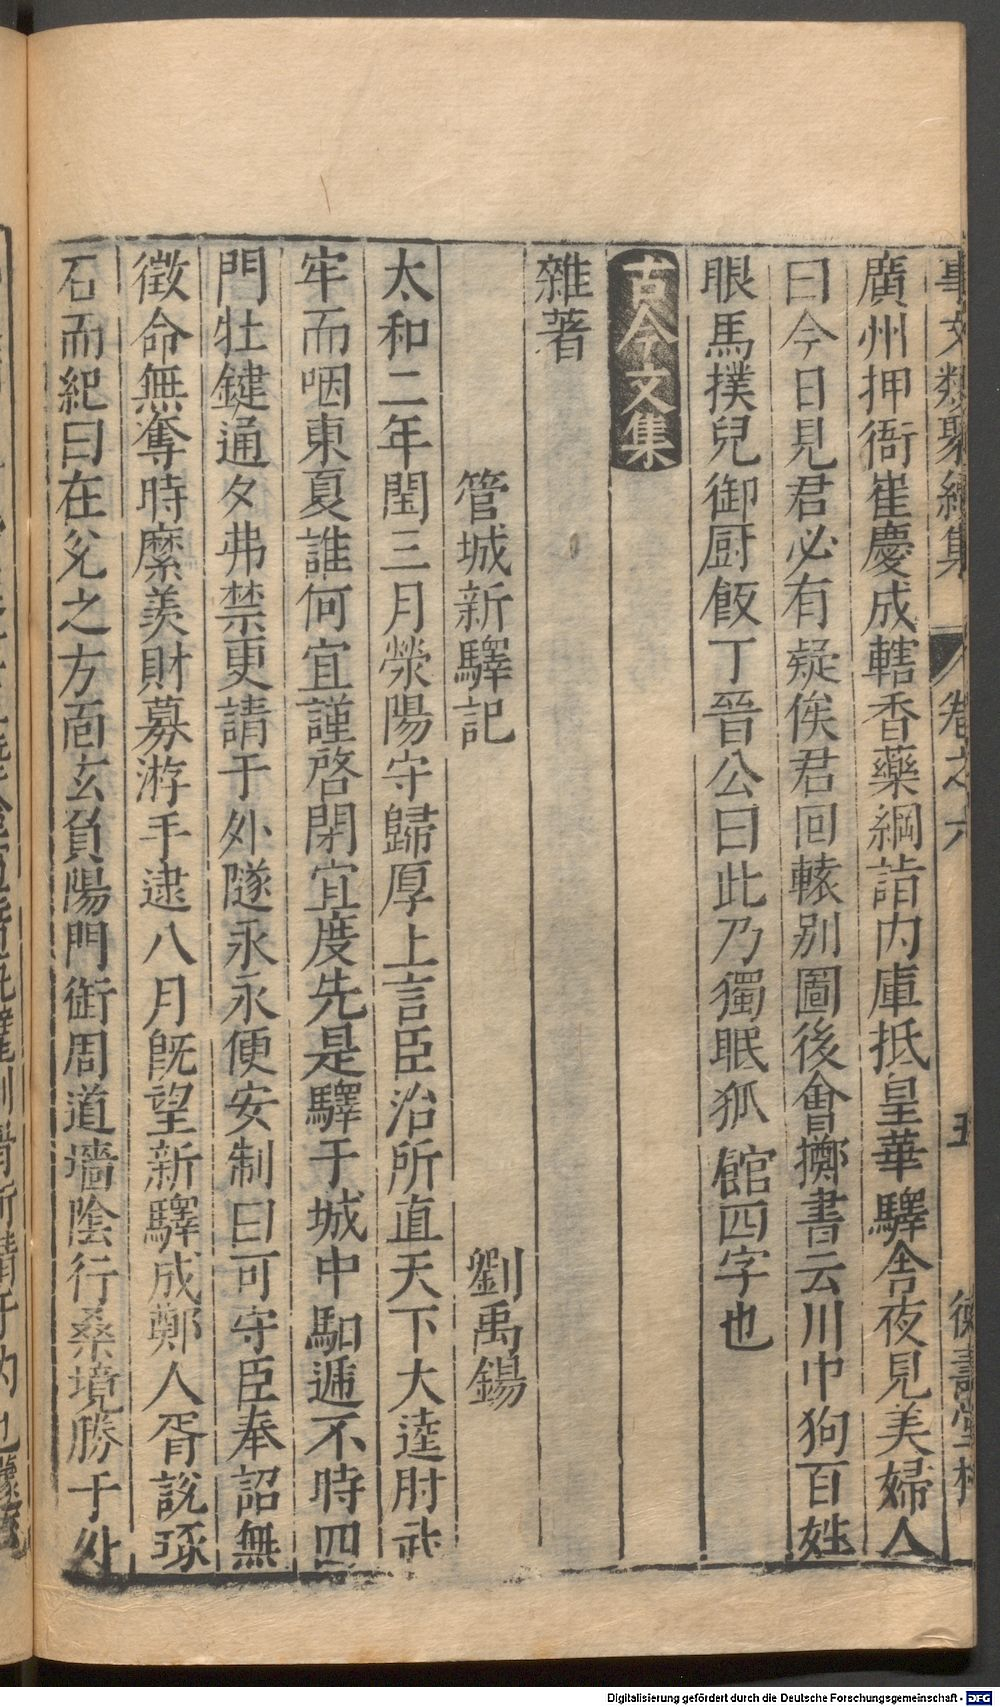 事文類聚續集 卷之六 五
廣州押衙崔慶成轄香藥綱詣內庫抵皇華驛舍夜見美婦人
曰今日見君必有疑俟君回轅別圖後會擲書云川中狗百姓
眼馬撲兒御厨飯丁晉公曰此乃獨眠孤館四字也
古今文集
雜著
管城新驛記 劉禹錫
太和二年閏三月滎陽守歸厚上言臣治所直天下大逵肘武
牢而咽東夏誰何宜謹啓閉宜度先是驛于城中馹遞不時四
門牡鍵通夕弗禁更請于外隧永永便安制曰可守臣奉詔無
徵命無奪時縻羨財募游手逮八月旣望新驛成鄭人胥說琢
石而紀曰在兊之方面玄負陽門衝周道墻陰行桑境勝于外
Digitalisierung gefördert durch die Deutsche Forschungsgemeinschaft - DFG